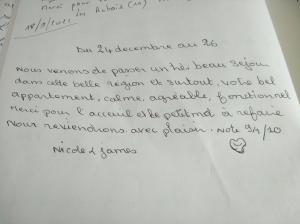 Merci pour
18/9/2021 les Rebois (10)
Du 24 decembre au 26
Nous venons de passer un très beau sejour
dans cette belle region et surtout, votre bel
appartement, calme, agréable, fonctionnel
Merci pour l'acceuil et le petit mot à refaire
Nous reviendrons avec plaisir. Note 9,4/10
Nicole & James